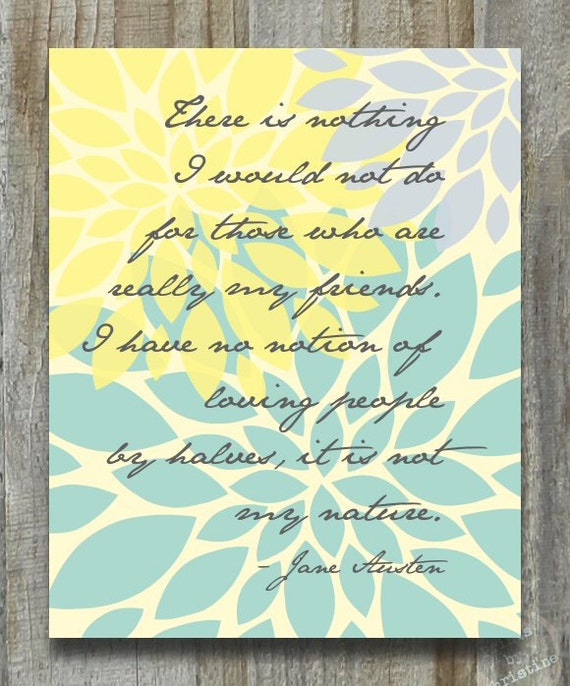 There is nothing
I would not do
for those who are
really my friends.
I have no notion of
loving people
by halves, it is not
my nature.
- Jane Austen
by
christine